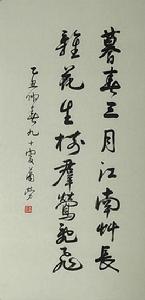 暮春三月江南艸長
雜花生树羣鶯亂飛
乙丑仲春九十叟蕭勞